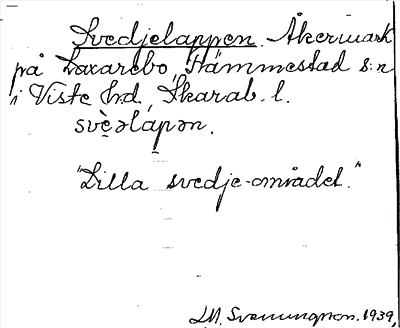 Svedjelappen. Åkermark
på Laxarebo, Hämmestad s:n
i Viste hd, Skarab. l.
svèəlapən.
"Lilla svedje-området."
M. Svenungson. 1939,